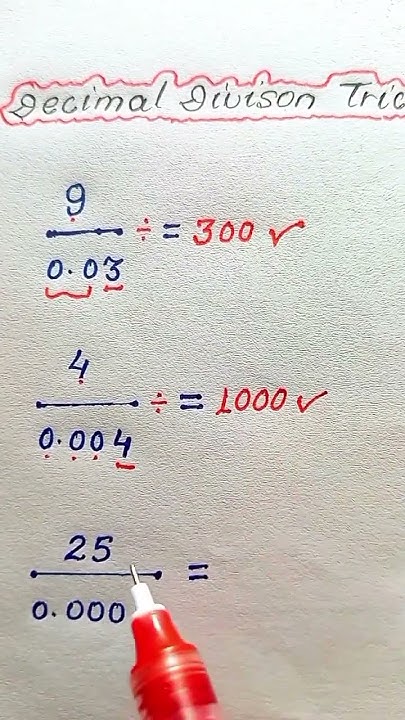 Decimal Divison Tric
9
0.03 ÷ = 300 ✓
4
0.004 ÷ = 1000 ✓
25
0.000 =